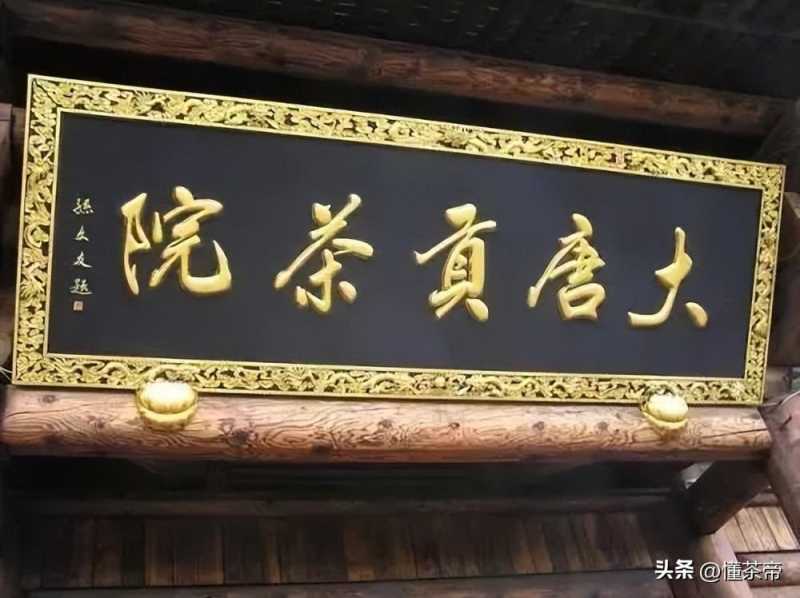 大唐貢茶院
孫文友題
头条 @懂茶帝